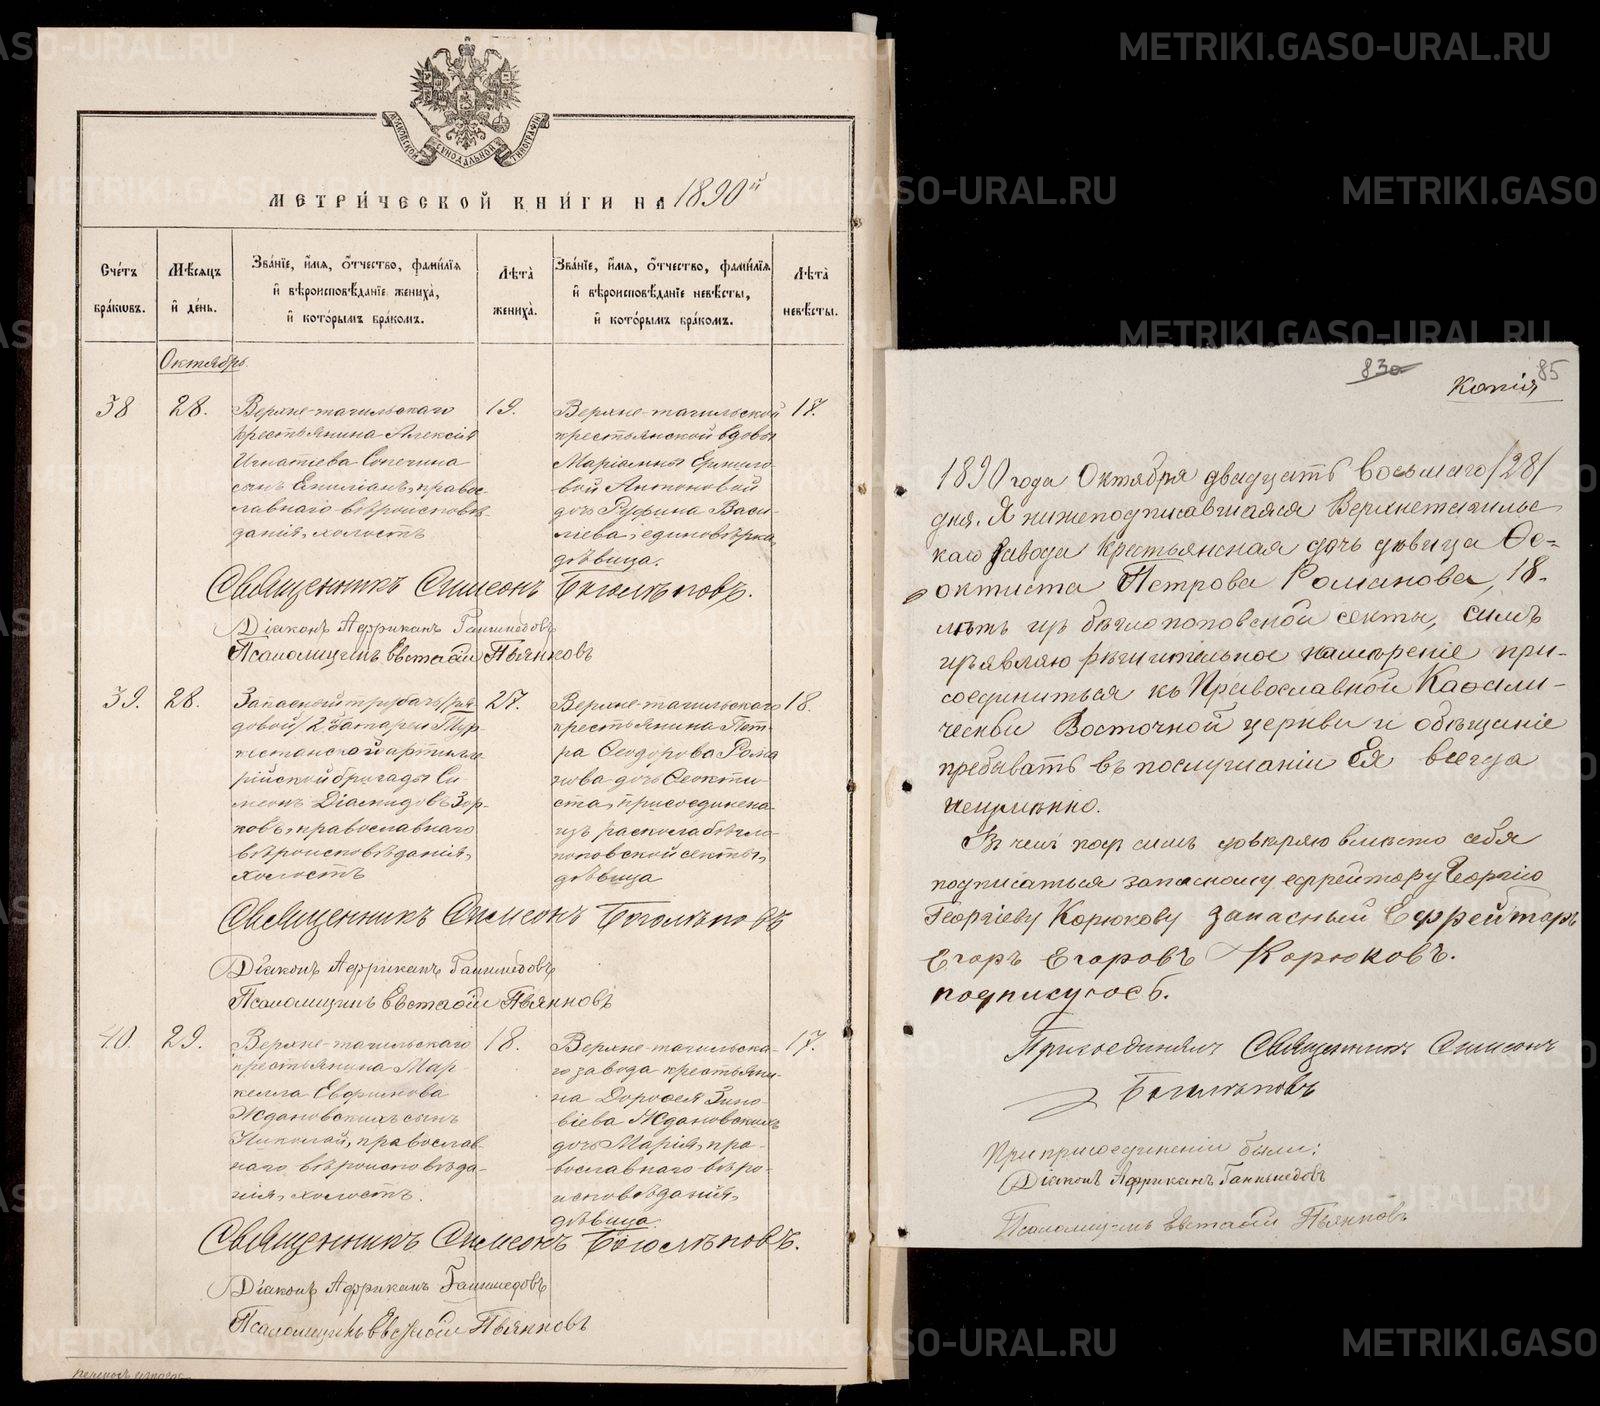 МОСКОВСКОЙ СѴНОДАЛЬНОЙ ТИПОГРАФІИ
МЕТРИ́ЧЕСКОЙ КНИ́ГИ НА 1890й
Счéтъ
брáкѡвъ.
Мѣ́сяцъ
и҆ дéнь.
Звáнїе, и҆́мя, ѻ҆́тчество, фами́лїя
и҆ вѣроисповѣ́данїе женихá,
и҆ котóрымъ брáкомъ.
Лѣтà
женихá.
Звáнїе, и҆́мя, ѻ҆́тчество, фами́лїя
и҆ вѣроисповѣ́данїе невѣ́сты,
и҆ котóрымъ брáкомъ.
Лѣтà
невѣ́сты.
Октябрь
38
28.
Верхне-тагильскаго
крестьянина Алексія
Игнатіева
сынъ Емиліанъ, правос-
лавнаго вѣроисповѣ-
данія, холостъ
19.
Верхне-тагильской
крестьянской вдовы
Маріамны
вой Антоновой
дочь Руфина Васи-
ліева, единовѣрка,
дѣвица.
17.
Священникъ Симеонъ Боголѣповъ.
Діаконъ Африканъ Ганимедовъ
Псаломщикъ Евстафій Пьянковъ
39.
28.
Запасной трубачъ /ря
довой/ 2 батареи Тур-
кестанской артилле
рійской бригады Си-
меонъ Діамидовъ Зор-
ковъ, православнаго
вѣроисповѣданія,
холостъ
27.
Верхне-тагильскаго
крестьянина Пет-
ра Ѳеодорова Рома
нова дочь Ѳеокти-
ста, присоединена
изъ раскола бѣгло-
поповской секты,
дѣвица
18.
Священникъ Симеонъ Боголѣповъ
Діаконъ Африканъ Ганимедовъ
Псаломщикъ Евстафій Пьянковъ
40.
29.
Верхне-тагильскаго
крестьянина Мар
келла Евфимова
Ждановскихъ сынъ
Николай, православ-
наго вѣроисповѣда-
нія, холостъ.
18.
Верхне-тагильска-
го завода крестьяни-
на Дороѳея Зино-
віева Ждановскихъ
дочь Марія, пра-
вославнаго вѣро-
исповѣданія,
дѣвица.
17.
Священникъ Симеонъ Боголѣповъ.
Діаконъ Африканъ Ганимедовъ
Псаломщикъ Евстафій Пьянковъ
830
85
Копія
1890 года Октября двадцать восьмаго /28/
дня. Я нижеподписавшаяся Верхнетагильс
каго завода крестьянская дочь девица Ѳе=
октиста Петрова Романова, 18-
лѣтъ изъ бѣглопоповской секты, симъ
изъявляю рѣшительное намѣреніе при-
соединиться къ Православной Каѳоли-
ческой Восточной церкви и обѣщаніе
пребывать въ послушаніи Ея всегда
неизмѣнно.
Въ чемъ подъ симъ довѣряю вмѣсто себя
подписаться запасному ефрейтору Георгію
Георгіеву Корюкову запасный Ефрейторъ
Егоръ Егоровъ Корюковъ.
подписуюсь.
Присоединялъ Священникъ Симеонъ
Боголѣповъ
При присоединеніи были:
Діаконъ Африканъ Ганимедовъ
Псаломщикъ Евстафій Пьянковъ
METRIKI.GASO-URAL.RU